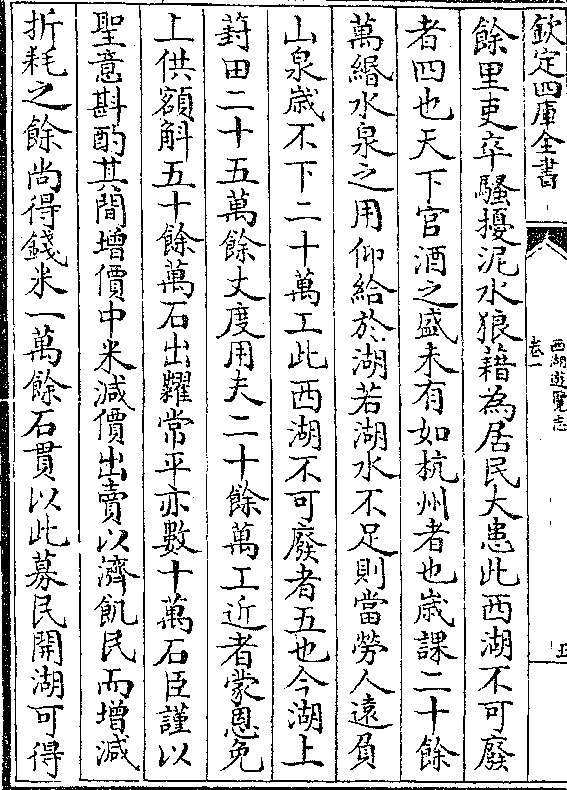 欽定四庫全書
西湖遊覽志
卷一
五
餘里吏卒騷擾泥水狼藉為居民大患此西湖不可廢
者四也天下官酒之盛未有如杭州者也歳課二十餘
萬緡水泉之用仰給於湖若湖水不足則當勞人逺負
山泉歳不下二十萬工此西湖不可廢者五也今湖上
葑田二十五萬餘丈度用夫二十餘萬工近者蒙恩免
上供額斛五十餘萬石出糶常平亦數十萬石臣謹以
聖意斟酌其間增價中米減價出賣以濟飢民而增減
折耗之餘尚得錢米一萬餘石貫以此募民開湖可得